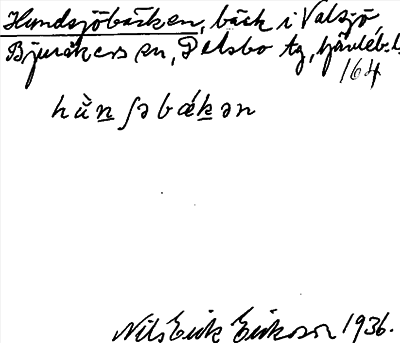 Hundsjöbäcken, bäck i Valsjö
Bjuråkers sn, Delsbo tg, Gävleb. l.
164
hù̈n̲ʃəbǽk̲ən
Nils Erik Eriksson 1936.